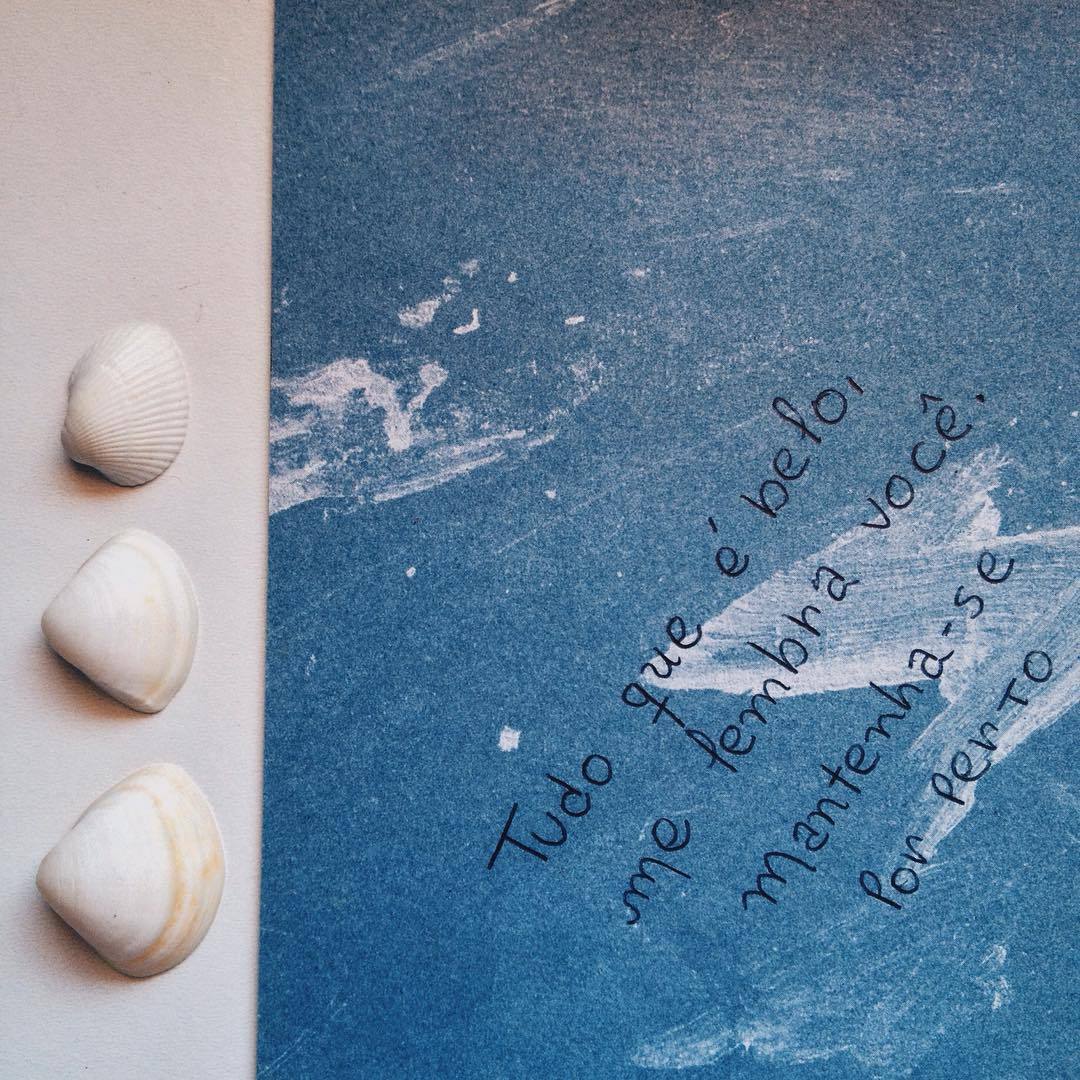 Tudo que é belo,
me lembra você.
mantenha-se
Por perto